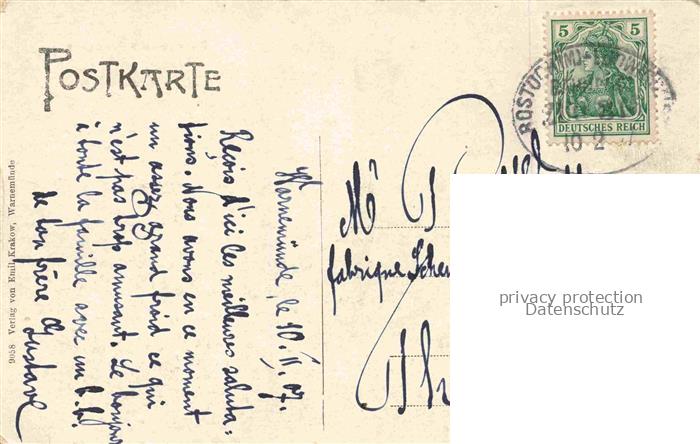 POSTKARTE
5 5
DEUTSCHES REICH
ROSTOCK
10 2
Warnemünde, le 10. II. 07.
Reçois d'ici les meilleures saluta=
tions. Nous avons en ce moment
un assez grand froid ce qui
n'est pas trop amusant. Le bonjour
à toute la famille avec un b.b.
de ton frère
Gustave
9058 Verlag von Emil Krakow, Warnemünde
Mr
fabrique
privacy protection
Datenschutz